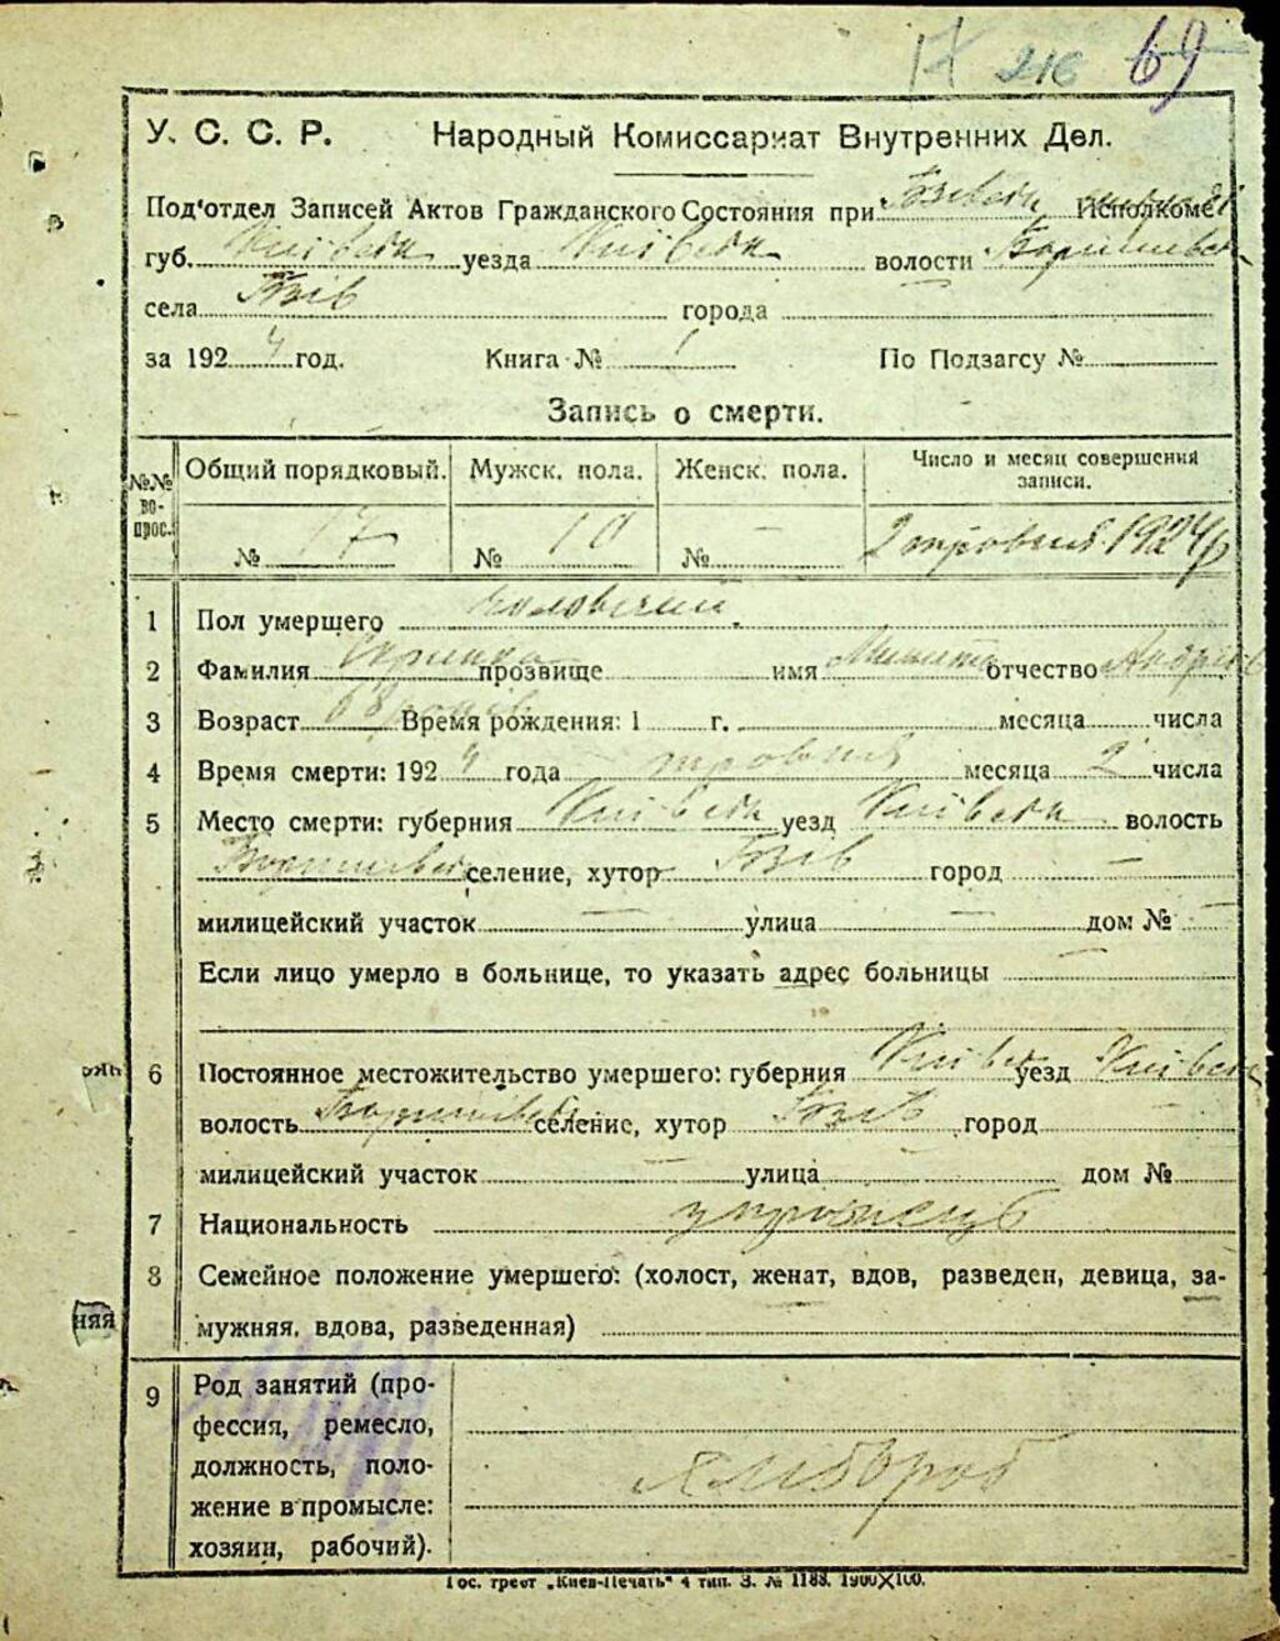 17 216 69
У. С. С. Р. Народный Комиссариат Внутренних Дел.
Под'отдел Записей Актов Гражданского Состояния при Исполкоме
губ. Київська уезда Київська волости
села Бзів города
за 1924 год. Книга № 1 По Подзагсу №
Запись о смерти.
№№ во-прос. Общий порядковый. Мужск. пола. Женск. пола. Число и месяц совершения записи.
№ 17 № 10 № — 2 травня 1924 р
1 Пол умершего чоловічий.
2 Фамилия прозвище имя Микита отчество
3 Возраст 68 років Время рождения: 1 г. месяца числа
4 Время смерти: 1924 года травня месяца 2 числа
5 Место смерти: губерния Київська уезд Київська волость
селение, хутор Бзів город —
милицейский участок — улица — дом № —
Если лицо умерло в больнице, то указать адрес больницы —
6 Постоянное местожительство умершего: губерния Київська уезд Київська
волость селение, хутор Бзів город —
милицейский участок — улица — дом №
7 Национальность українець
8 Семейное положение умершего: (холост, женат, вдов, разведен, девица, за-
мужняя, вдова, разведенная)
9 Род занятий (про-
фессия, ремесло,
должность, поло- хлібороб
жение в промысле:
хозяин, рабочий).
Гос. трест „Киев-Печать" 4 тип. З. № 1188. 1900X100.
няя